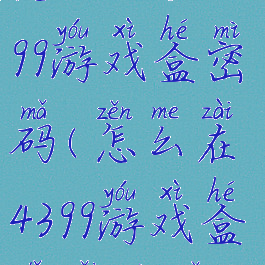 yóu xì hé mì
99游戏盒密
mǎ zěn me zài
码(怎么在
yóu xì hé
4399游戏盒